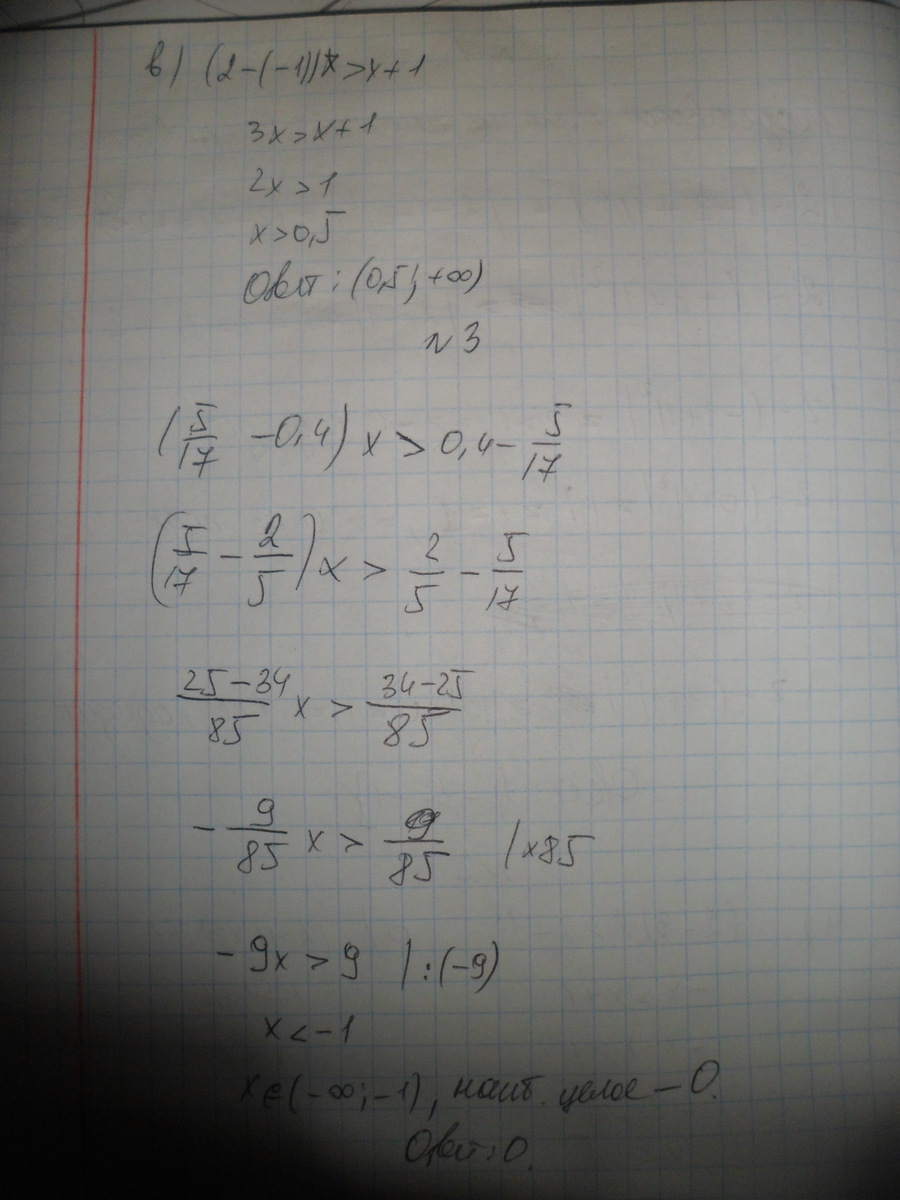 в) (2-(-1))x>x+1
3x>x+1
2x>1
x>0,5
Ответ: (0,5; +∞)
№3
(5/17 -0,4) x > 0,4- 5/17
(5/17 - 2/5) x > 2/5 - 5/17
25-34/85 x > 34-25/85
- 9/85 x > 9/85 |×85
-9x > 9 |:(-9)
x < -1
x∈(-∞; -1), наиб. целое - 0.
Ответ: 0.